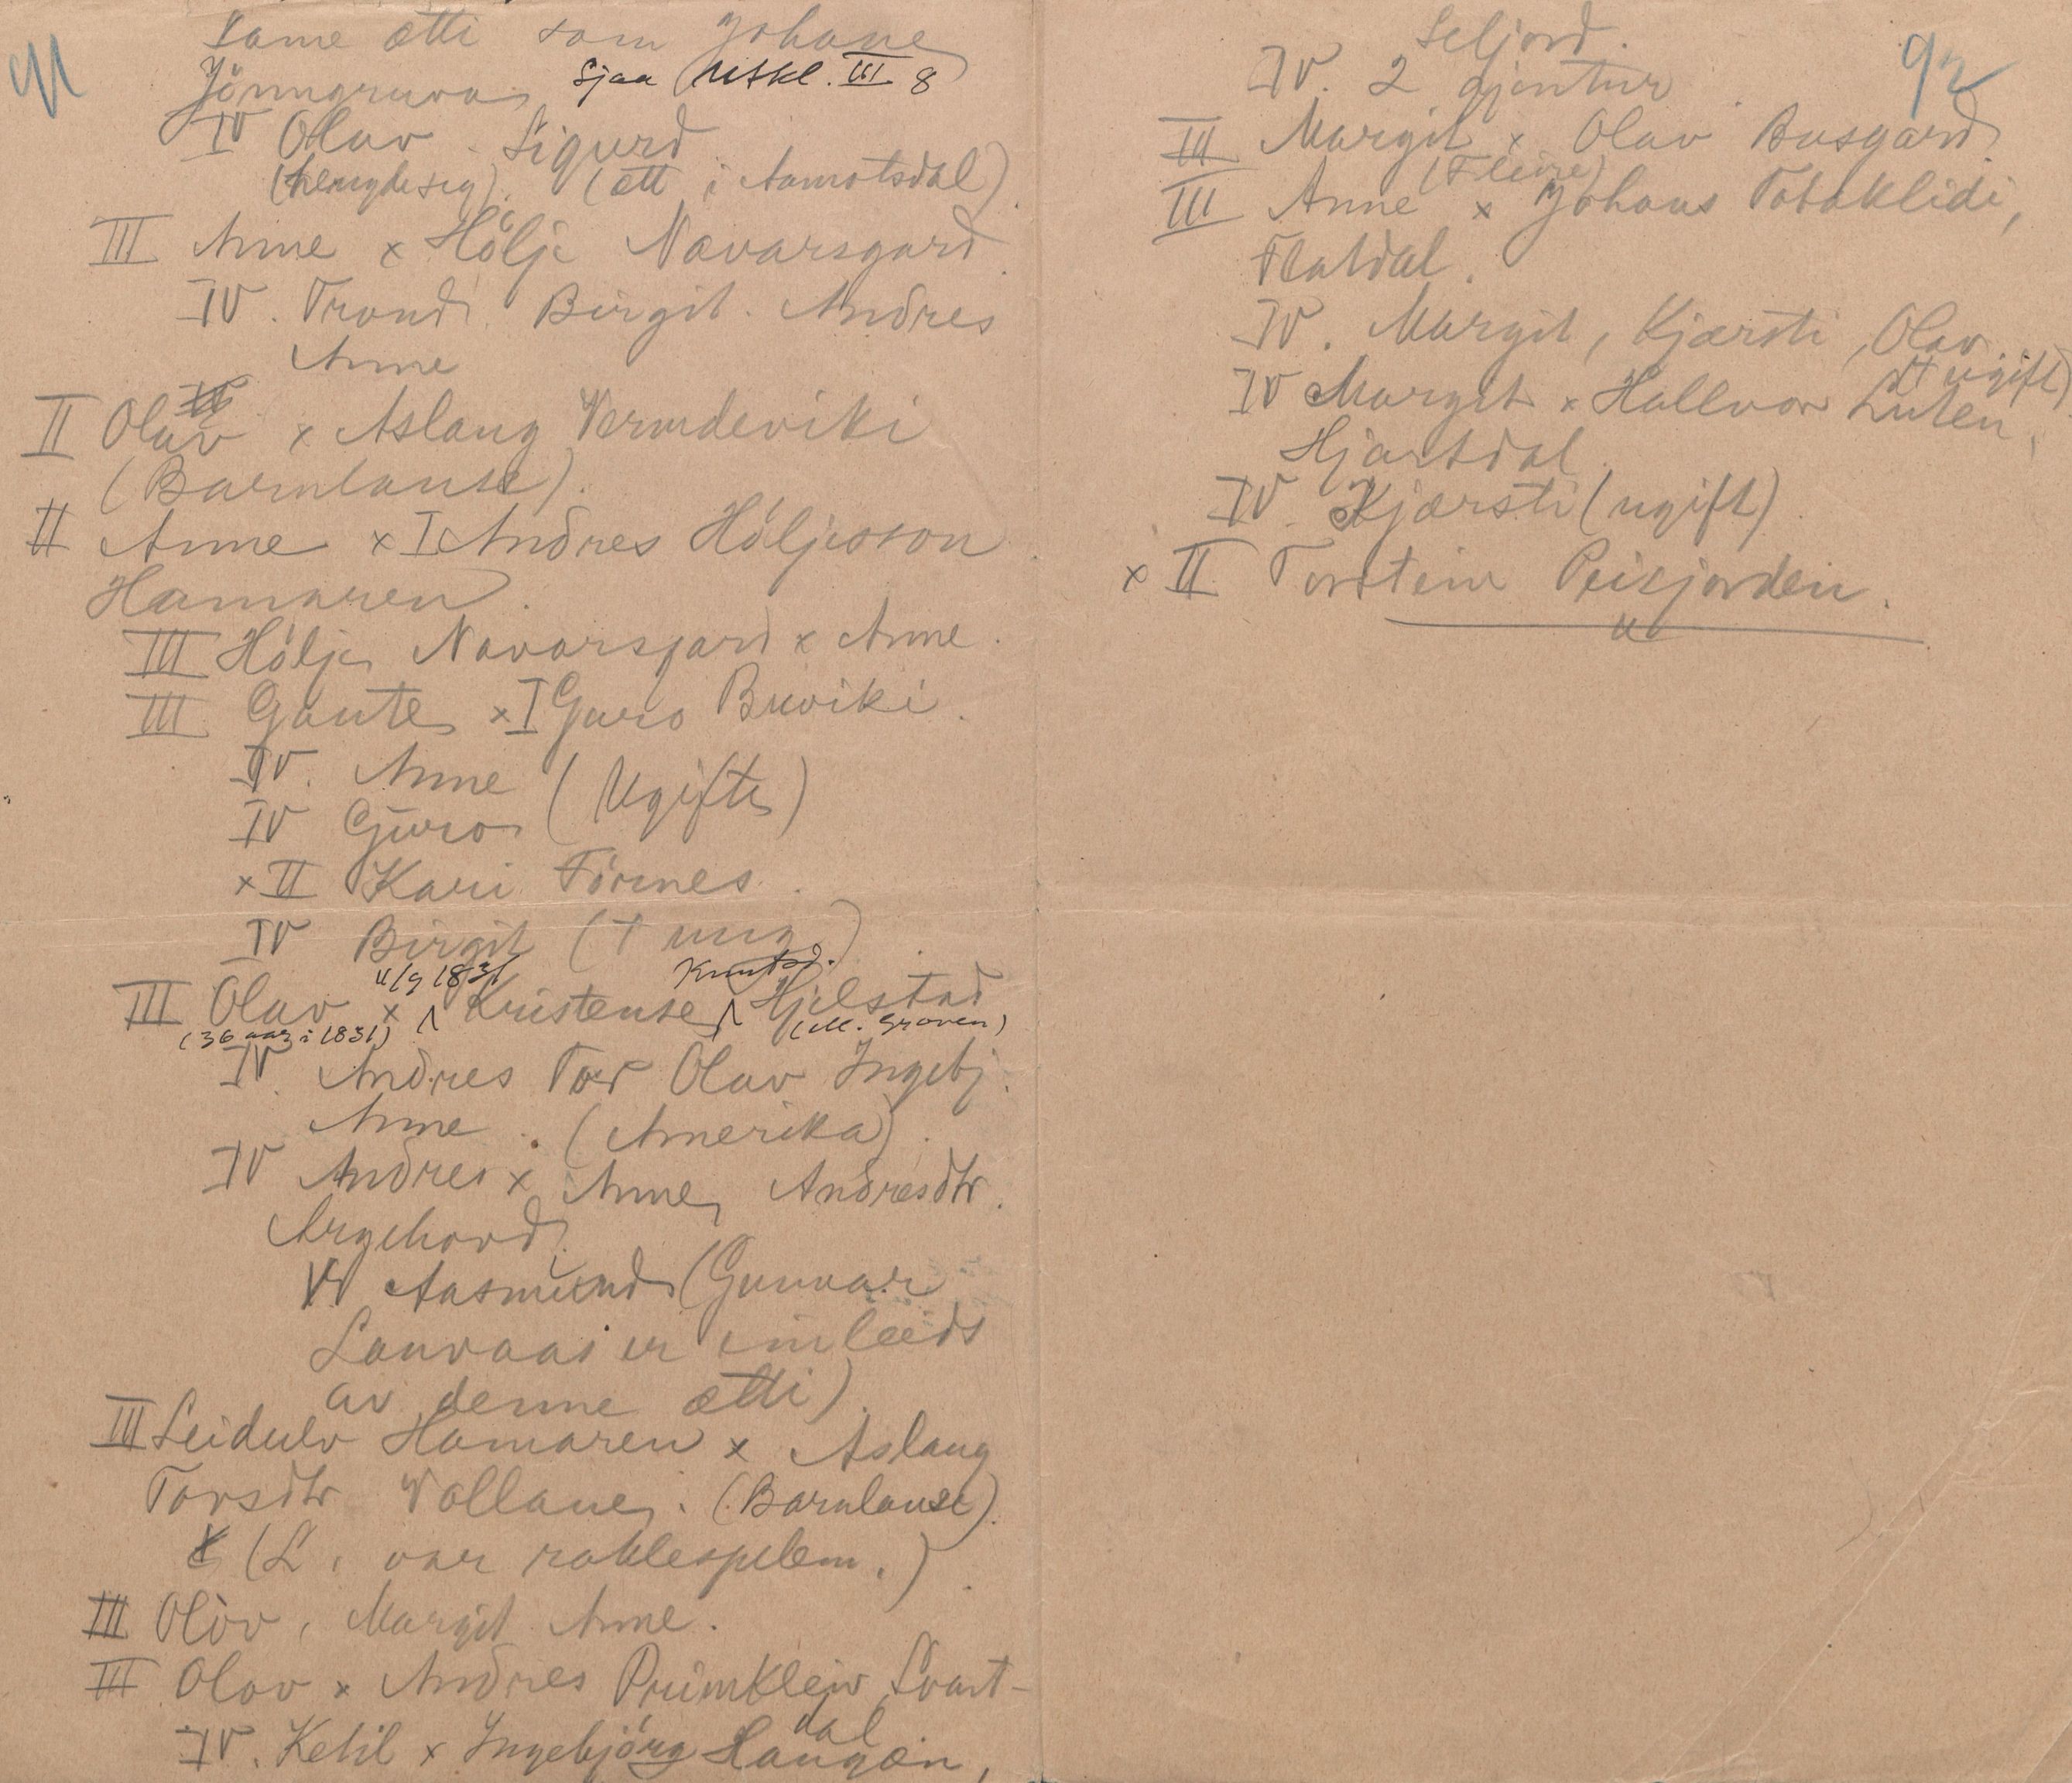 91
same ætti som Johane
Jönngruva Sjaa Utkl. III 8
IV Olav. Sigurd
(hengde seg). (ætt i Aamotsdal).
III Anne x Hölje Navarsgard.
IV. Trond. Birgit. Andres
Anne
II Olav x Aslaug Vermdeviki
(Barnlause).
II Anne x I Andres Höljesson
Hamaren.
III Hölje Navarsgard x Anne.
III Gaute x I Guro Buviki.
IV. Anne (Ugifte)
IV Guro
x II Kari Förnes.
IV Birgit († ung.)
11/9 1831 Knutsd.
III Olav x Kristense Hjelstad
(36 aar i 1831) (M. Groven)
IV. Andres Tor Olav Ingebj.
Anne. (Amerika).
IV Andres x Anne Andresdtr.
Argehovd.
V Aasmund (Gunnar
Lauvaas er einleeds
av denne ætti).
III Leidulv Hamaren x Aslaug
Torsdtr Vollane. (Barnlause).
(L. var spelem.).
III Olöv, Margit Anne.
III Olov x Andres Primkleiv Svart-
dal
IV. Ketil x Ingebjörg Haugan,
92
Seljord.
IV. 2 gjentur.
III Margit x Olav Busgard.
(Fleire)
III Anne x Johans Tobakklidi,
Flatdal.
IV. Margit, Kjærsti, Olav
(† ugift)
IV Margit x Hallvor Luten,
Hjartdal.
IV. Kjærsti (ugift).
x II Torstein Peisjordei.